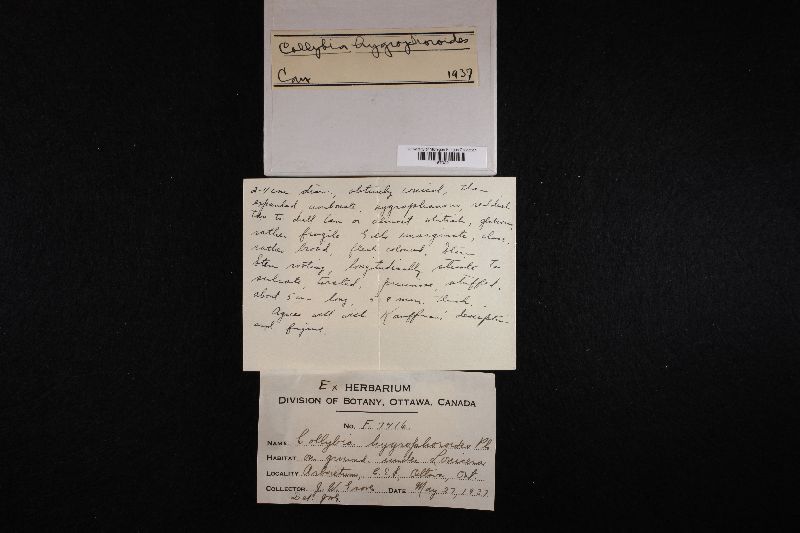 Collybia hygrophoroides
Can 1937
2-4 cm diam., obtusely conical, then
expanded umbonate, hygrophanous, reddish
then to dull tan or almost whitish, glabrous,
rather fragile. Gills emarginate, close,
rather broad, flesh coloured.
Stem rooting, longitudinally striate to
sulcate, twisted, pruinose, stuffed,
about 5 cm long, mm. thick.
Agrees well with Kauffman's description
and figures.
Ex HERBARIUM
DIVISION OF BOTANY, OTTAWA, CANADA
No. F 7416
NAME Collybia hygrophoroides Pk
HABITAT on ground under Lonicera
LOCALITY Arboretum, C.E.F. Ottawa, Ont.
COLLECTOR J. W. Groves DATE May 27, 1937
Det. JWG